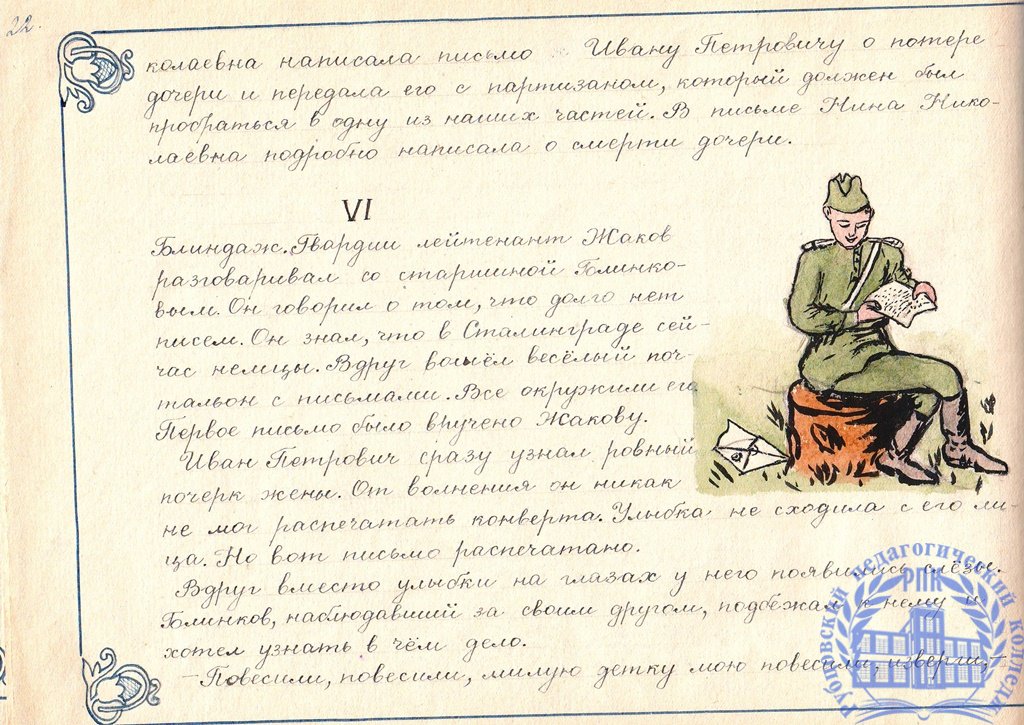 22.
колаевна написала письмо Ивану Петровичу о потере
дочери и передала его с партизаном, который должен был
пробраться в одну из наших частей. В письме Нина Нико-
лаевна подробно написала о смерти дочери.
VI
Блиндаж. Гвардии лейтенант Жаков
разговаривал со старшиной Блинко-
вым. Он говорил о том, что долго нет
писем. Он знал, что в Сталинграде сей-
час немцы. Вдруг вошёл весёлый поч-
тальон с письмами. Все окружили его
Первое письмо было вручено Жакову.
Иван Петрович сразу узнал ровный
почерк жены. От волнения он никак
не мог распечатать конверта. Улыбка не сходила с его ли-
ца. Но вот письмо распечатано.
Вдруг вместо улыбки на глазах у него появились слёзы.
Блинков, наблюдавший за своим другом, подбежал к нему и
хотел узнать в чём дело.
–Повесили, повесили, милую детку мою повесили, изверги,
Рубцовский педагогический колледж
РПК